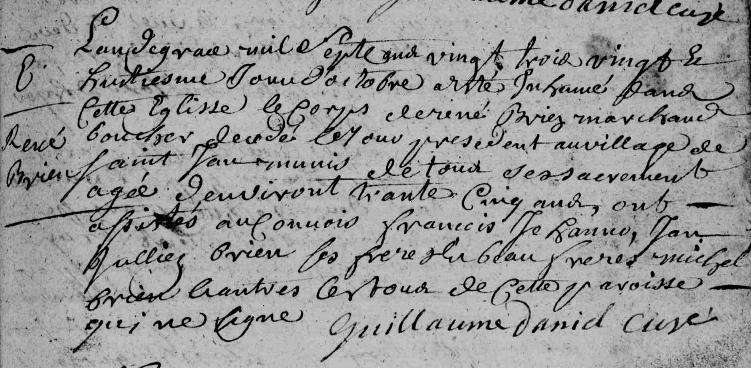 Guillaume Daniel curé
Lan de grace mil Sept cens vingt trois vingt &
B huitiesme Jour doctobre a esté Inhumé dans
Cette Eglisse le Corps de rené Brien marchand
René boucher decedé le Jour precedent au village de
Brien saint Jan munis de tous ses sacrement
agé denviront trante Cinq ans, ont
assistés au Convois francois Jehanno, Jan
Jullien brien ses frere & beau freres michel
brien & autres les tous de Cette paroisse
qui ne signe Guillaume Daniel Curé